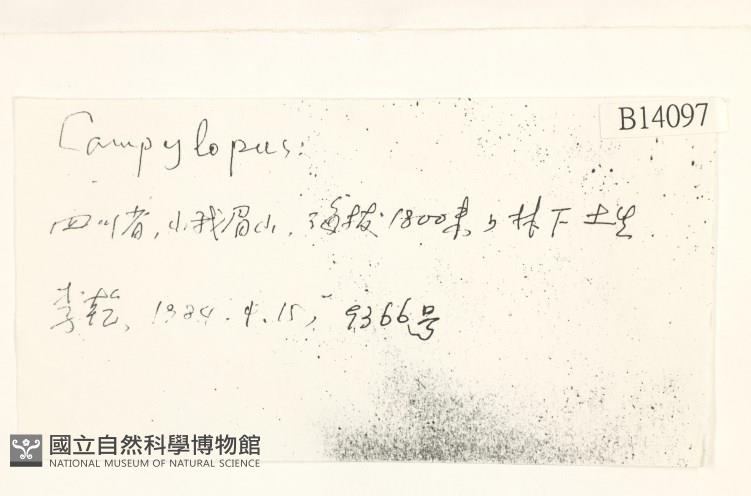 B14097
Campylopus:
四川省,小我眉山,海拔1800米,林下土生
李乾, 1984.4.15, 9366号
國立自然科學博物館
NATIONAL MUSEUM OF NATURAL SCIENCE